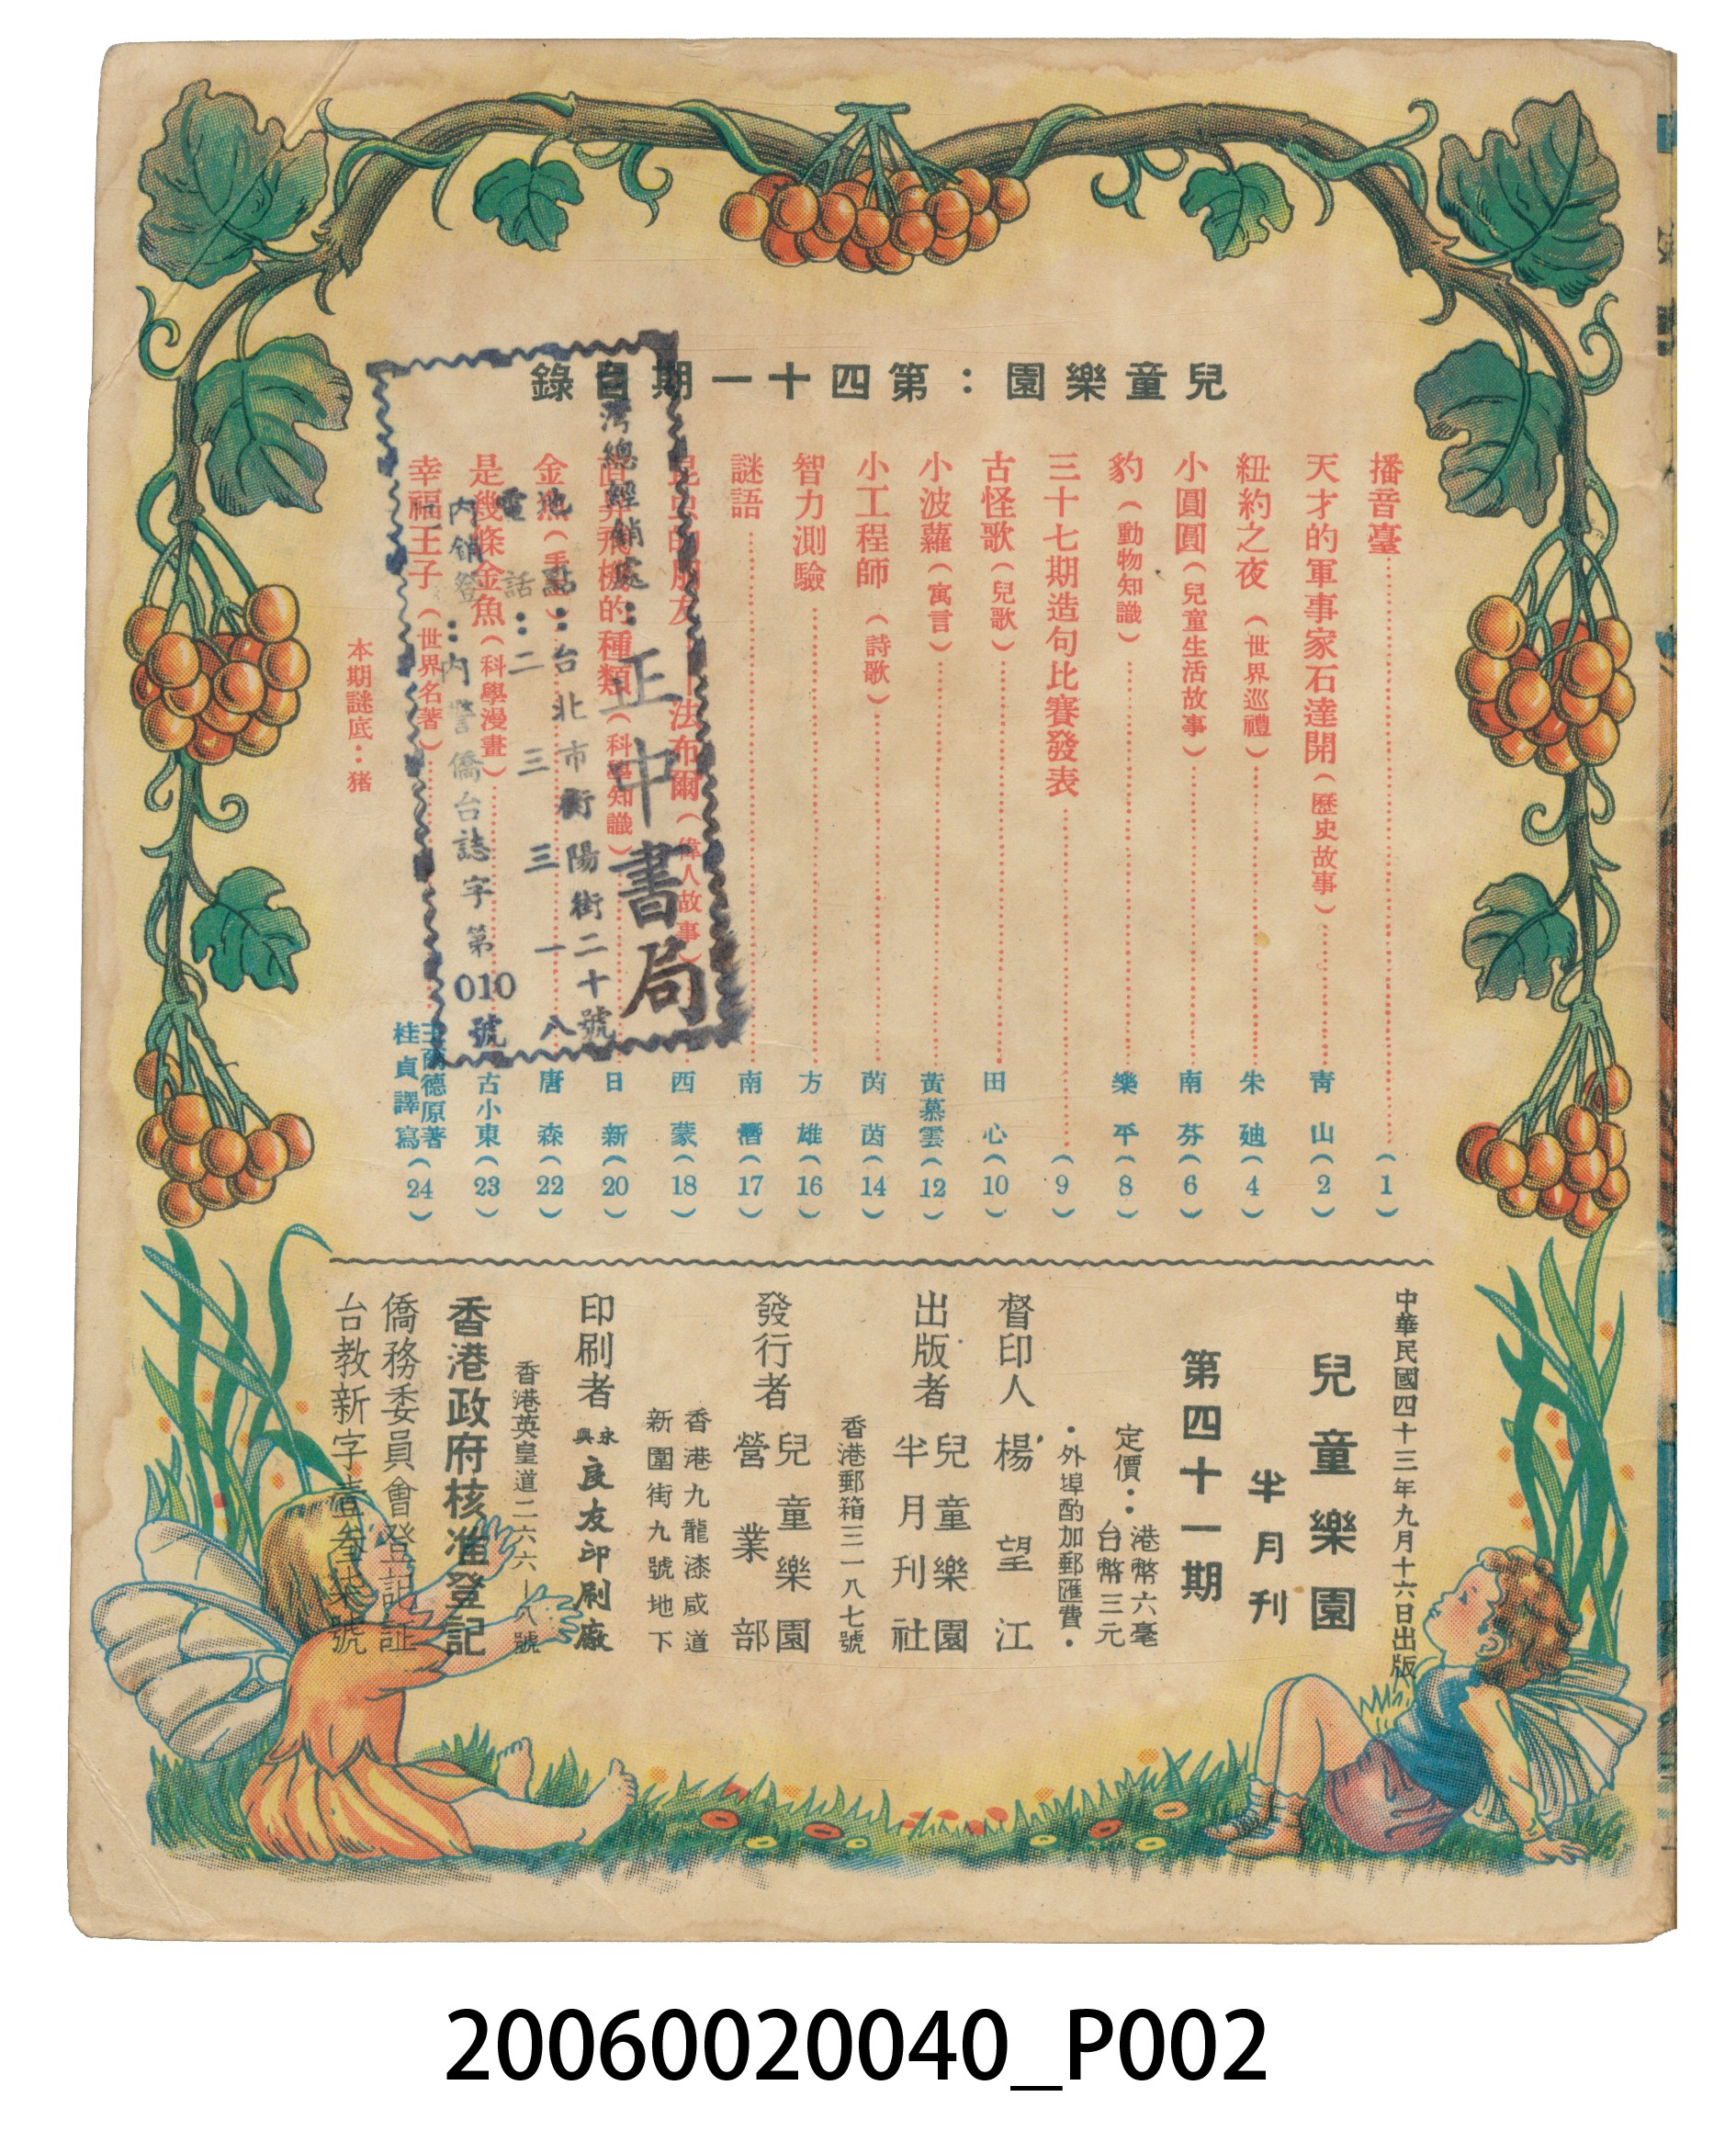 兒童樂園：第四十一期目錄
播音臺……(1)
天才的軍事家石達開(歷史故事)……靑山(2)
紐約之夜(世界巡禮)……朱廸(4)
小圓圓(兒童生活故事)……南芬(6)
豹(動物知識)……樂平(8)
三十七期造句比賽發表……(9)
古怪歌(兒歌)……田心(10)
小波蘿(寓言)……黃慕雲(12)
小工程師(詩歌)……茵茵(14)
智力測驗……方雄(16)
謎語……南潛(17)
昆虫的朋友—法布爾(偉人故事)……西蒙(18)
直昇飛機的種類(科學知識)……日新(20)
金魚(手工)……唐森(22)
是幾條金魚(科學漫畫)……古小東(23)
幸福王子(世界名著)……王爾德原著
桂貞譯寫(24)
本期謎底：猪
灣總經銷處：正中書局
地點：台北市衡陽街二十號
電話：二三三一八
內銷登：內警僑台誌字第010號
中華民國四十三年九月十六日出版
兒童樂園
半月刊
第四十一期
定價：港幣六毫
台幣三元
·外埠酌加郵匯費·
督印人 楊望江
出版者 兒童樂園
半月刊社
香港郵箱三一八七號
發行者 兒童樂園
營業部
香港九龍漆咸道
新圍街九號地下
印刷者 永興良友印刷廠
香港英皇道二六六—八號
香港政府核准登記
僑務委員會登記証
台教新字壹叁柒號
20060020040_P002